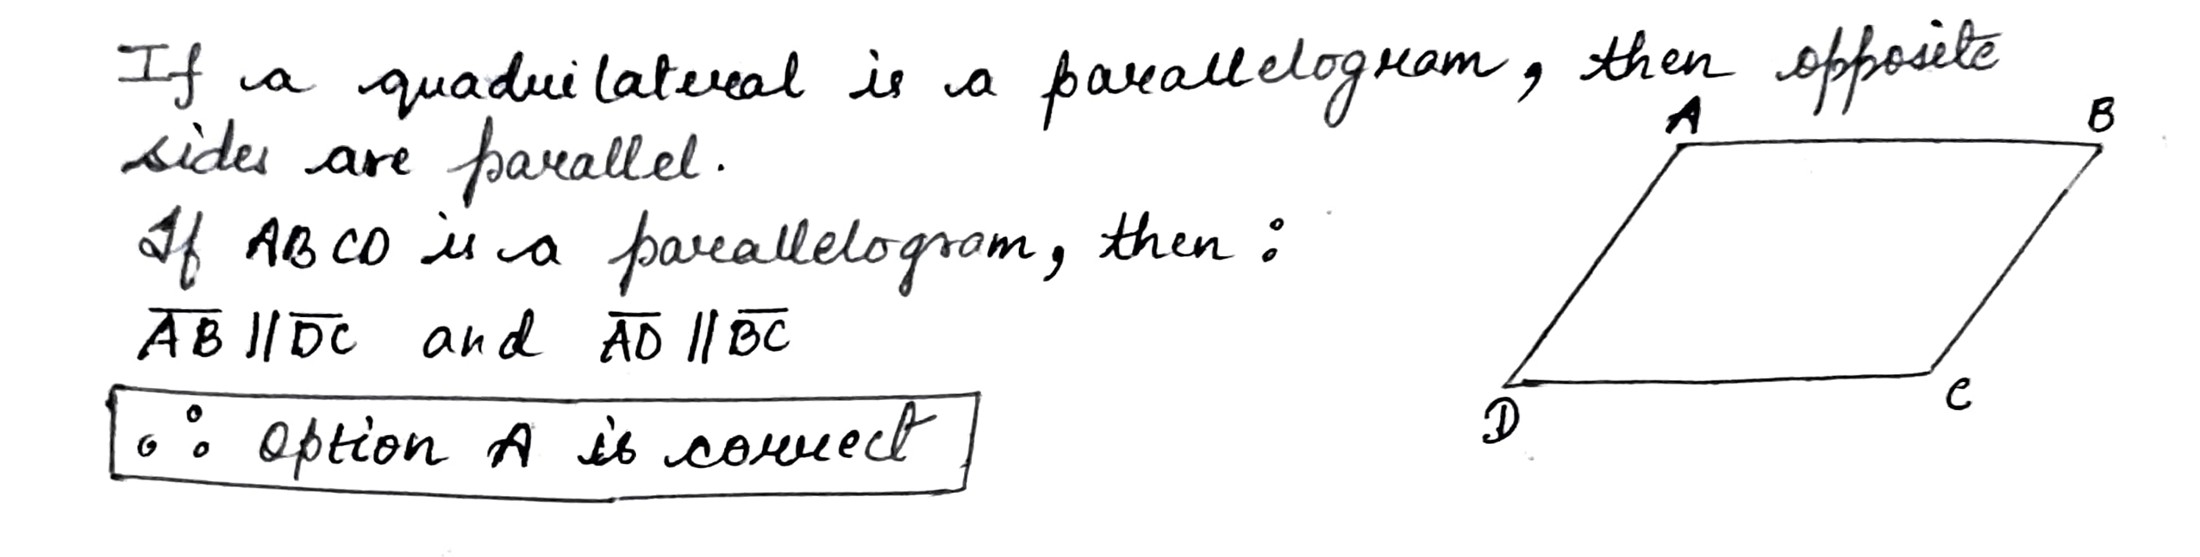 If a quadrilateral is a parallelogram, then opposite
sides are parallel.
A B
If ABCD is a parallelogram, then :
A̅B̅ || D̅C̅ and A̅D̅ || B̅C̅
D C
∴ option A is correct